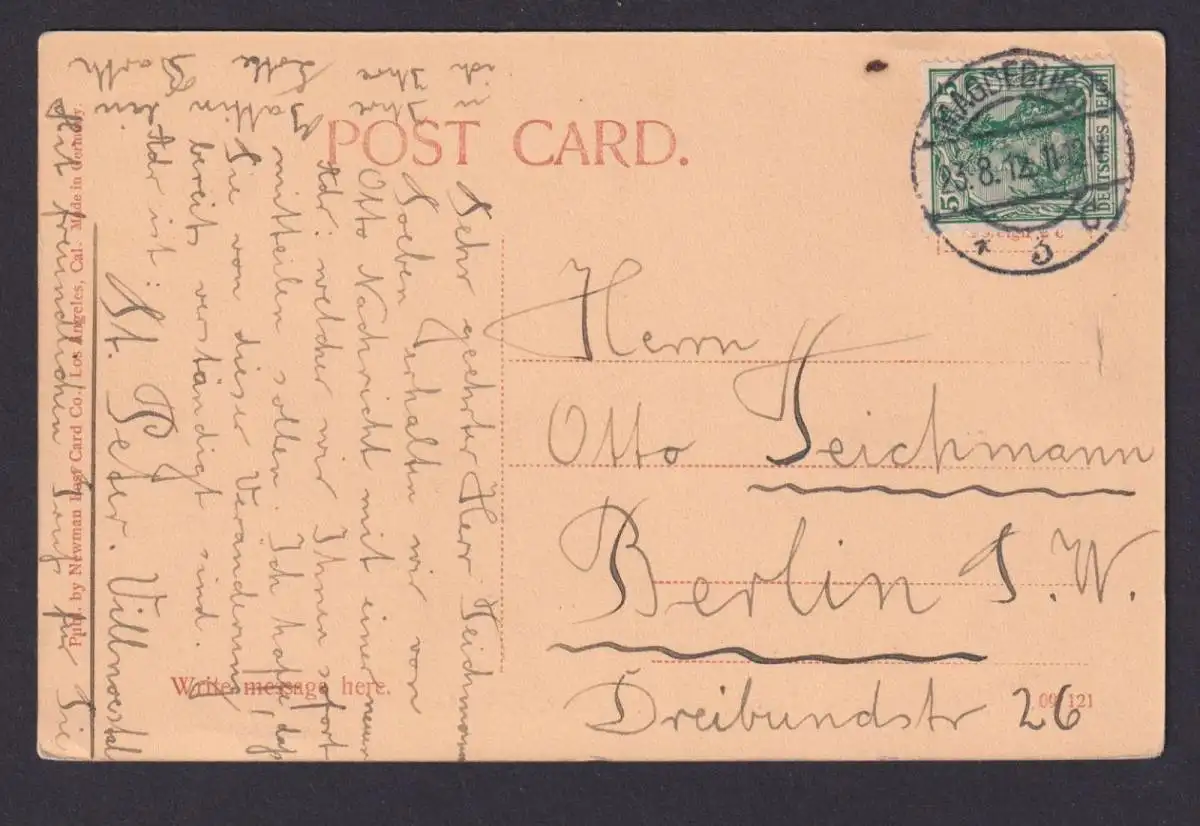 POST CARD.
MAGDEBURG
8.12.11
* 5 d
DEUTSCHES REICH
5
Herrn
Otto Teichmann
Berlin S.W.
Dreibundstr 26
09/121
Write message here.
Publ. by Newman Post Card Co., Los Angeles, Cal. Made in Germany.
Sehr geehrter Herr Teichmann
Soeben erhalten wir von
Otto Nachricht mit einer neuen
Adr. welcher wir Ihnen sofort
mitteilen sollen. Ich hoffe, daß
Sie von dieser Veränderung
bereits verständigt sind.
Adr ist:
St. Peter. Villnoestal
Mit freundlichen Gruß für Sie
ich
Ihre